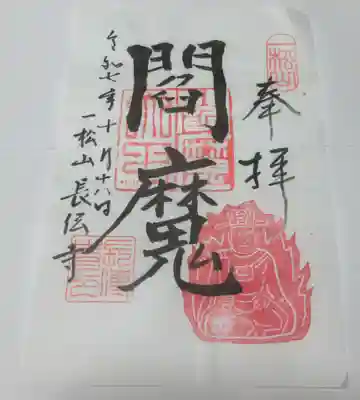 一松山
奉拝
閻魔
令和七年十月十八日
一松山 長伝寺